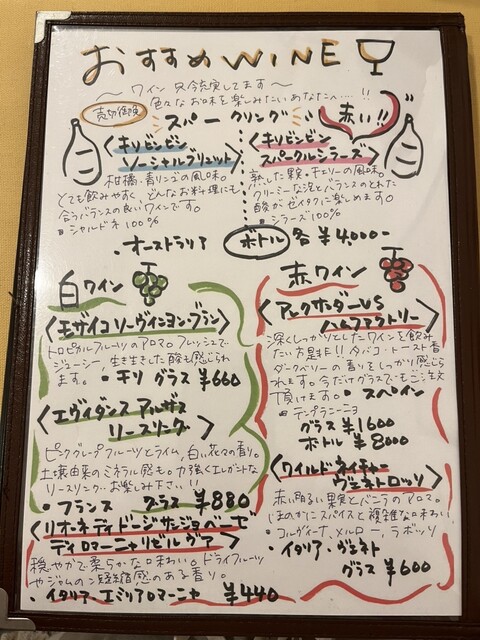 おすすめ WINE
〜ワイン 只今充実してます〜
色々なお味を楽しみたいあなたへ…!!
売切御免
スパークリング
赤い!!
<キリビンビン
ソーシャルブリュット>
柑橘・青リンゴの風味。
とても飲みやすく、どんなお料理にも
合うバランスの良いワインです。
シャルドネ100%
・オーストラリア
<キリビンビン
スパークルシラーズ>
熟した果実・チェリーの風味。
クリーミーな泡とバランスのとれた
酸がゼイタクに楽しめます。
シラーズ100%
ボトル 各¥4,000-
白ワイン
<モザイコソーヴィニヨン・ブラン>
トロピカルフルーツのアロマ フレッシュで
ジューシー、生き生きした酸も感じられ
ます。・チリ グラス ¥660
<エヴィダンス アルザス
リースリング>
ピンクグレープフルーツとライム、白い花々の香り。
土壌由来のミネラル感も。力強くエレガントな
リースリング お楽しみ下さい!!
・フランス グラス ¥880
<リオ・ネティドージサンジョベーゼ
ディロマーニャリゼルヴァ>
穏やかで柔らかな口味わい。ドライフルーツ
やジャムの凝縮感のある香り。
・イタリア・エミリアロマーニャ ¥440
赤ワイン
<アレクサンダーVS
ハムファクトリー>
深くしっかりとしたワインを飲み
たい方是非!!タバコ・トースト香
ダークベリーの香りをしっかり感じら
れます。今だけグラスでもご注文
頂けます。・スペイン
テンプラニーニョ
グラス ¥1600
ボトル ¥8000
<ワイルドネイチャー
ヴェネトロッソ>
赤い明るい果実とバニラのアロマ。
ほのかにスパイスと複雑な味わい
・コルヴィーナ、メルロー、ラボッソ
・イタリア・ヴェネト
グラス ¥600